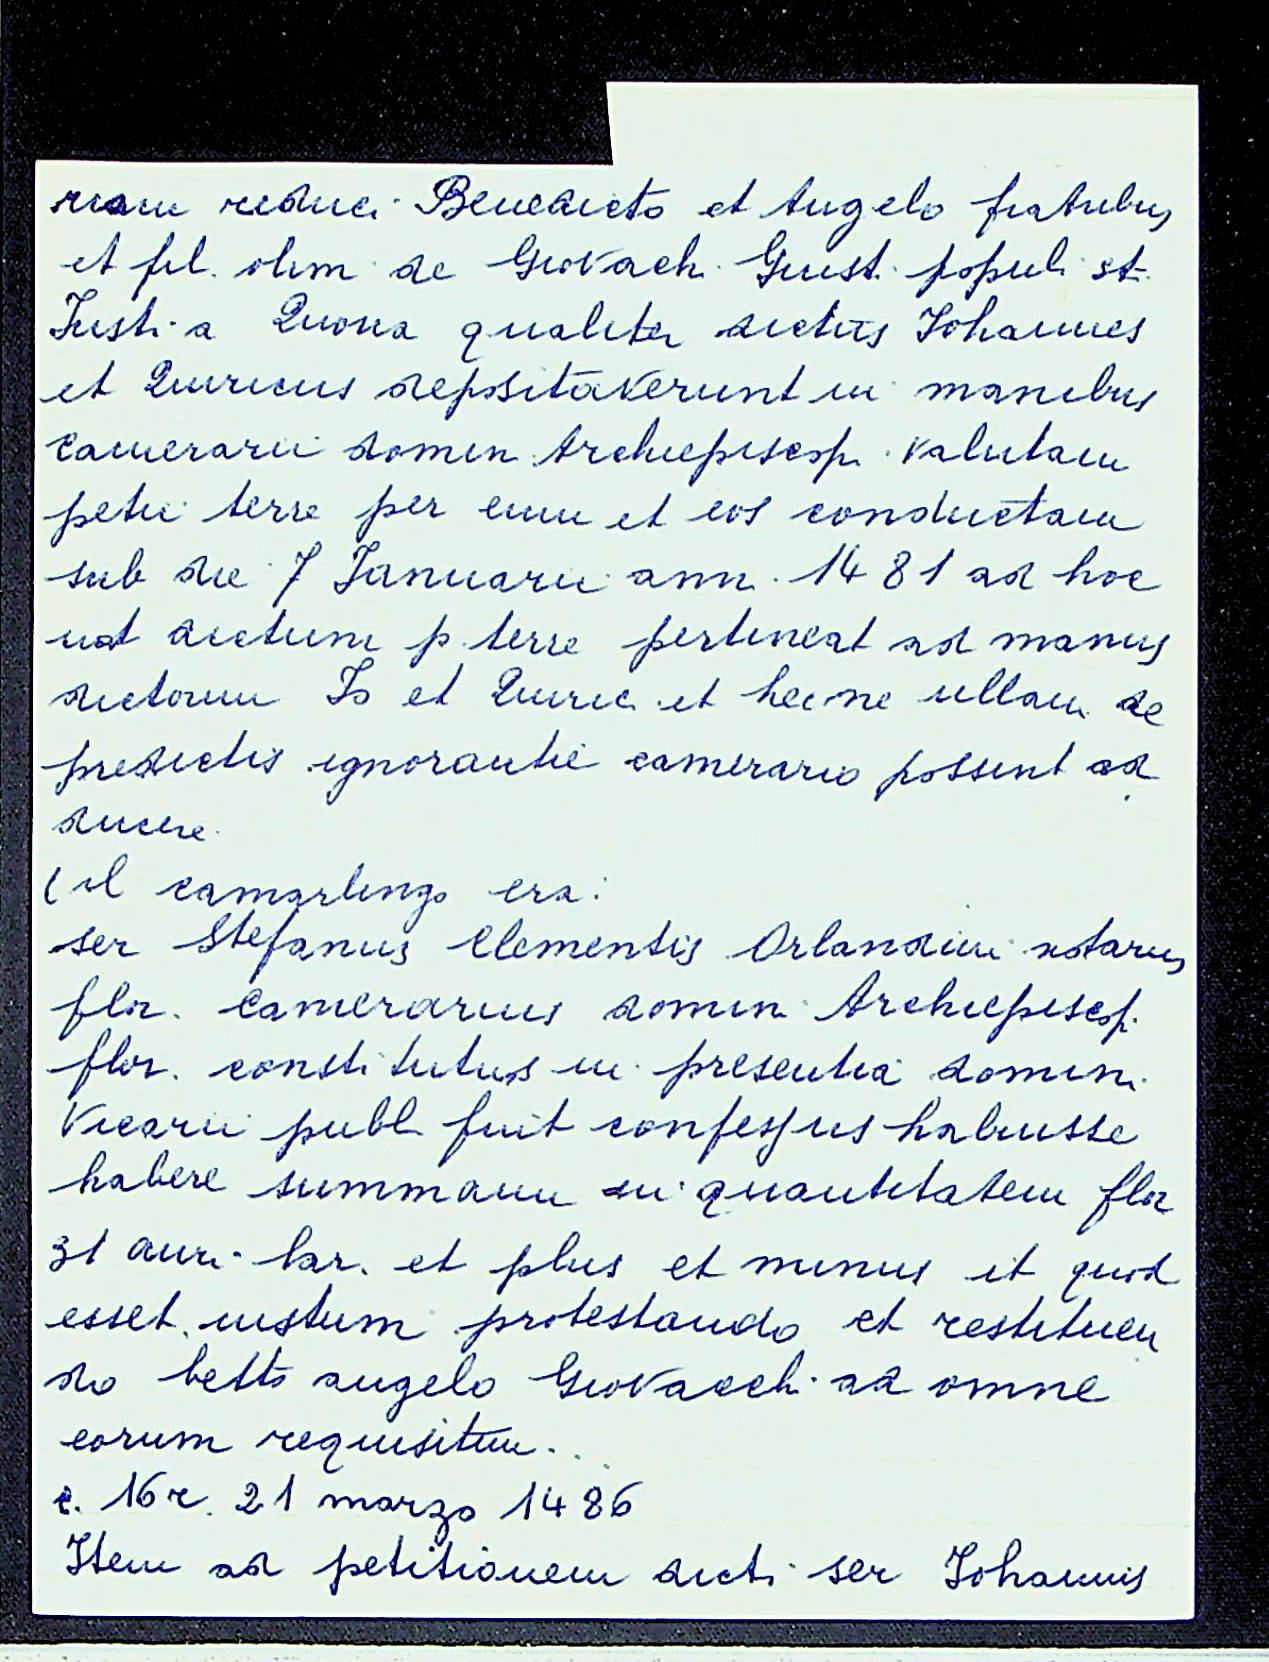 riam reduci Benedicto et Angelo fratribus
et fil. olim de Giovach. Giust. populi st.
Iusti a Quona qualiter dictus Iohannes
et Quiricus depositaverunt in manibus
camerarii domin. Archiepiscop. valutam
petii terre per eum et eos conductam
sub die 7 Ianuarii ann. 1481 ad hoc
ut dictum p. terre pertineat ad manus
dictorum Io et Quiric. et hec ne ullam de
predictis ignorantie camerario possint ad
ducere.
(il camarlingo era:
ser Stefanus Clementis Orlandini notarius
flor. camerarius domin. Archiepiscop.
flor. constitutus in presentia domin.
Vicarii publ. fuit confessus habuisse
habere summam in quantitatem flor
31 auri lar. et plus et minus it quod
esset iustum protestando et restituen
do betto angelo Giovacch. ad omne
eorum requisitum...
c. 16 r. 21 marzo 1486
Item ad petitionem dicti ser Iohannis